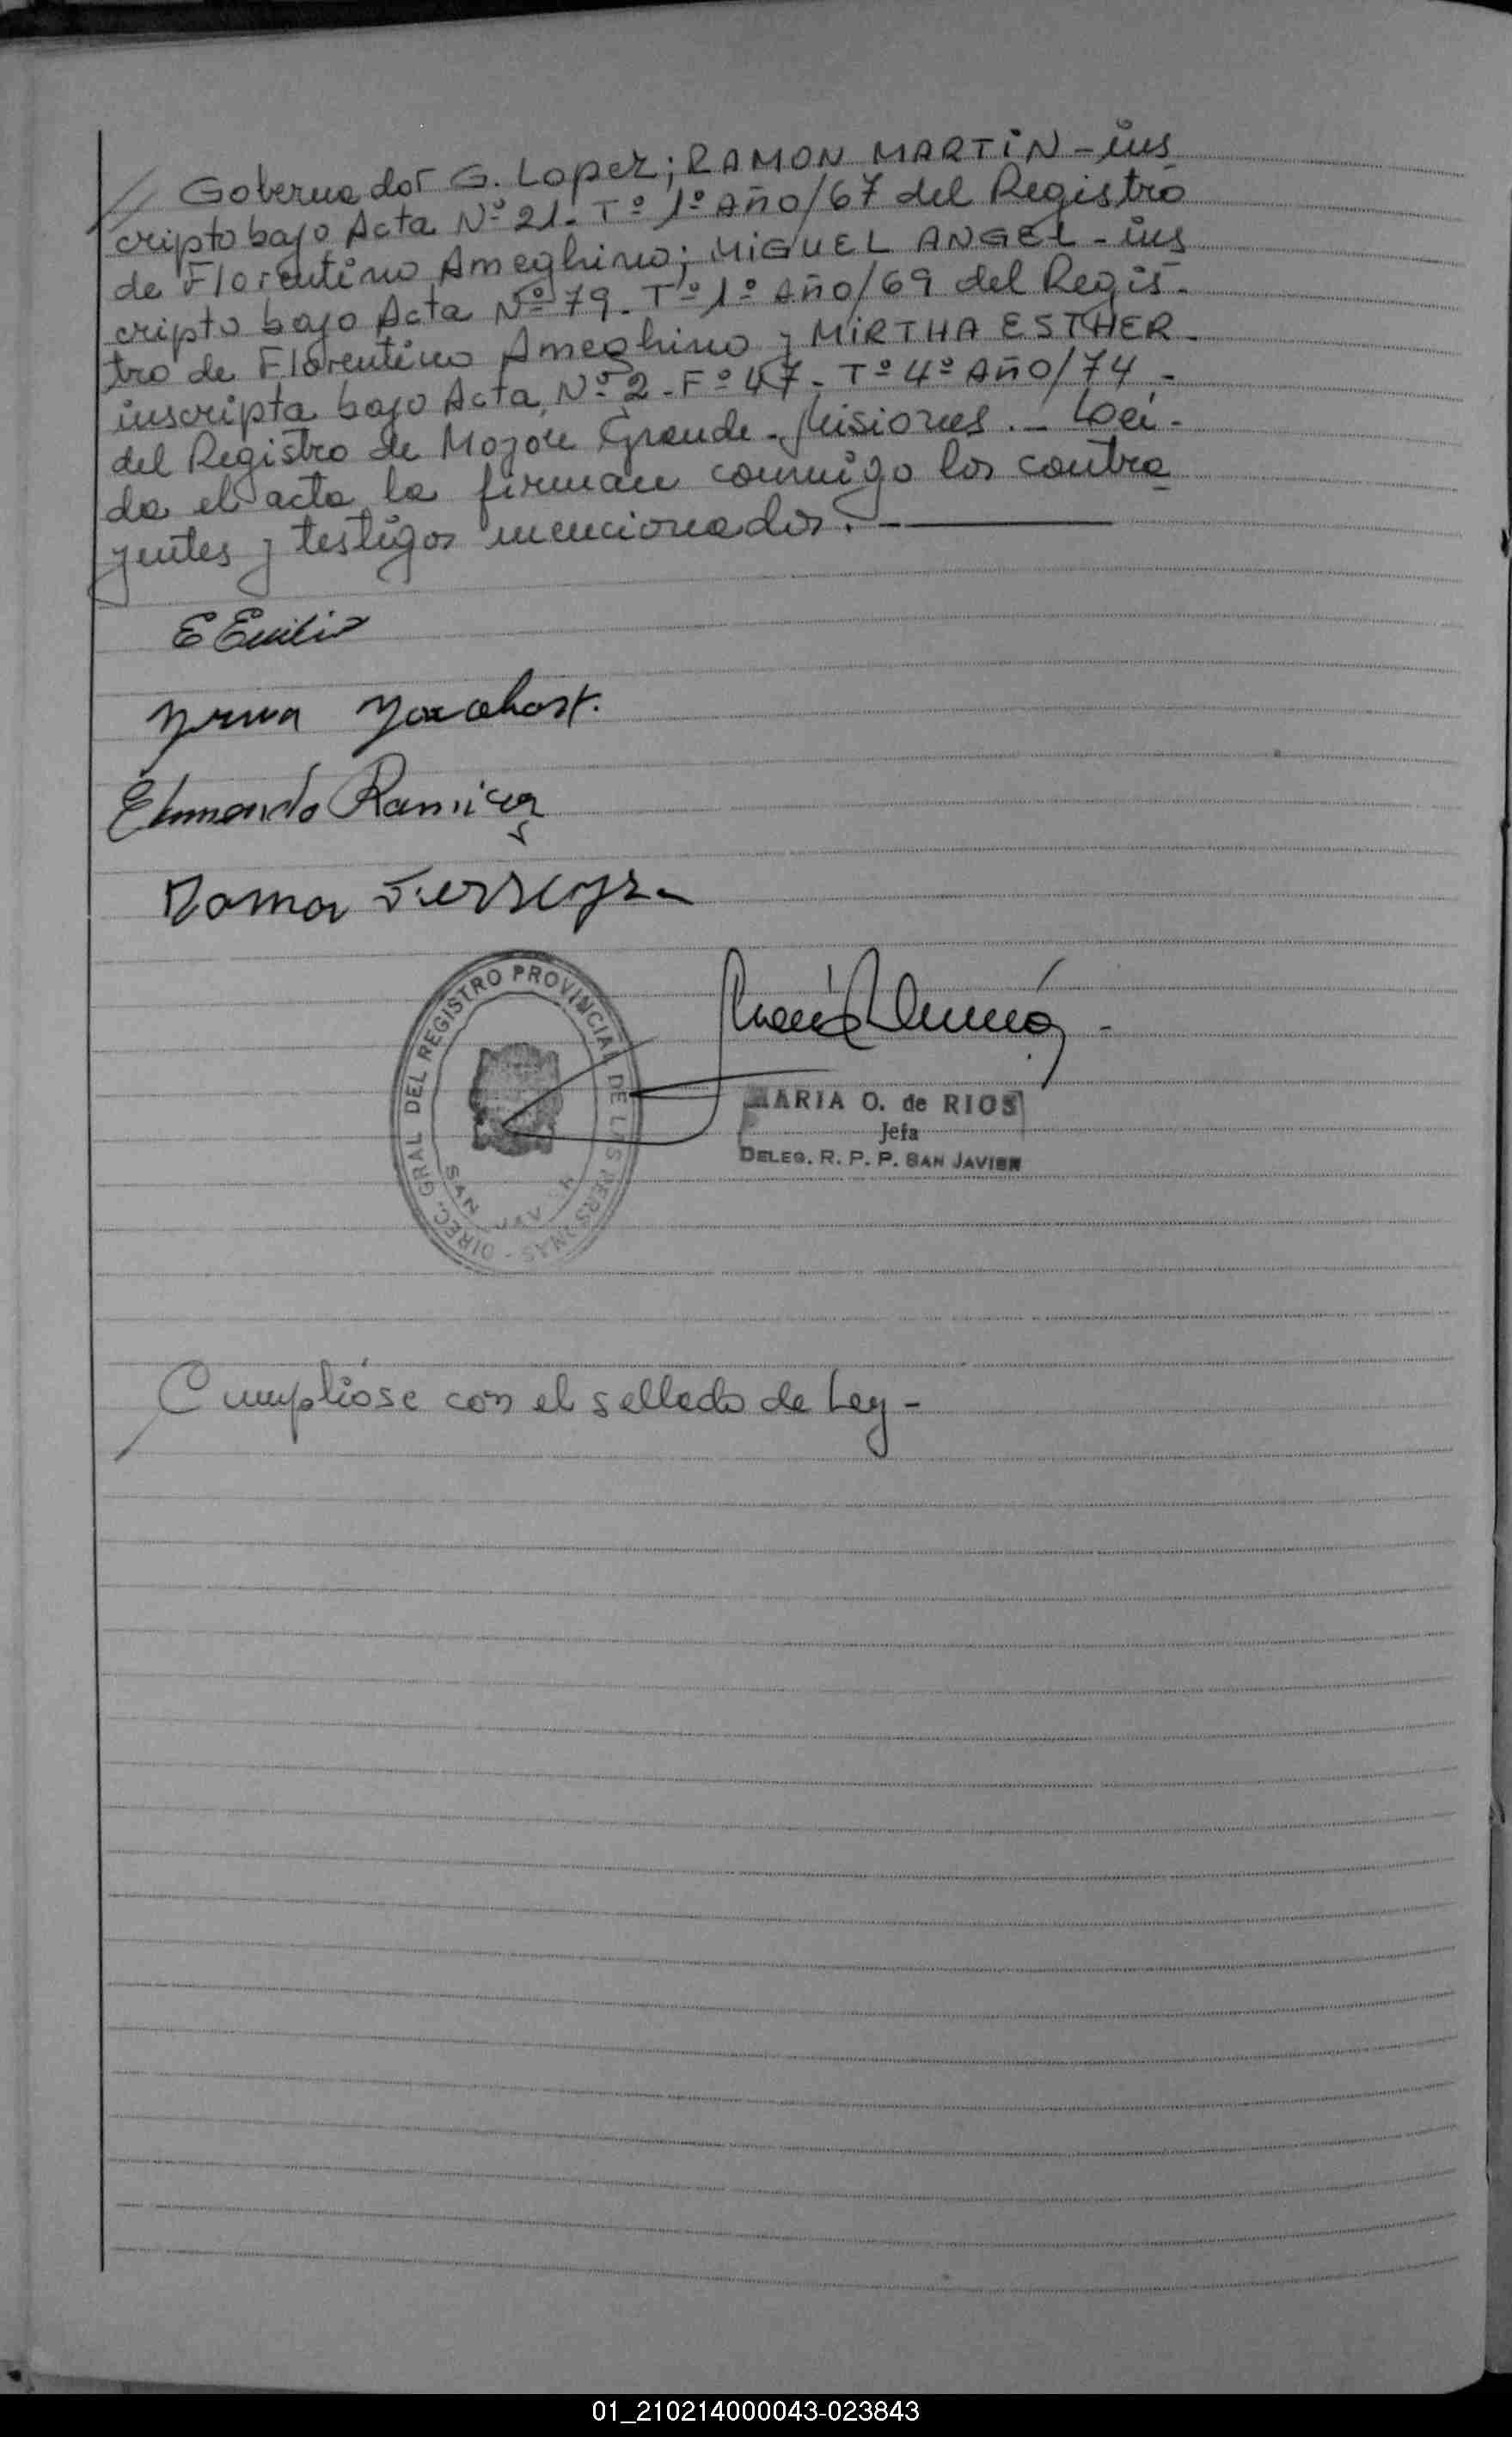 // Gobernador G. Lopez; RAMON MARTIN - ins
cripto bajo Acta Nº 21. Tº 1º Año/67 del Registro
de Florentino Ameghino; MIGUEL ANGEL - ins
cripto bajo Acta Nº 79. Tº 1º Año/69 del Regis-
tro de Florentino Ameghino y MIRTHA ESTHER -
inscripta bajo Acta Nº 2 - Fº 47 - Tº 4º Año/74 -
del Registro de Mojón Grande - Misiones. - Leí-
da el acta la firman conmigo los contra
yentes y testigos mencionados. -
E Emilio
Yrma
Edmundo Ramirez
Ramon Ferreyra
DIREC. GRAL DEL REGISTRO PROVINCIAL DE LAS PERSONAS -
SAN JAVIER
MARIA O. de RIOS
Jefa
DELEG. R. P. P. SAN JAVIER
Cumplióse con el sellado de Ley -
01_210214000043-023843